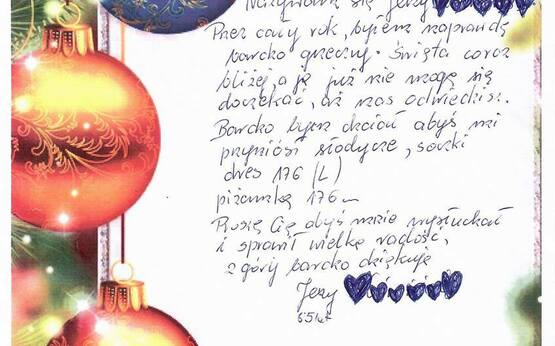 Nazywam się Jerzy
Przez cały rok, byłem naprawdę
bardzo grzeczny. Święta coraz
bliżej, a ja już nie mogę się
doczekać, aż nas odwiedzisz.
Bardzo bym chciał abyś mi
przyniósł słodycze, soczki
dres 176 (L)
piżamkę 176
Proszę Cię abyś mnie wysłuchał
i sprawił wielką radość,
z góry bardzo dziękuję
Jerzy
55 lat